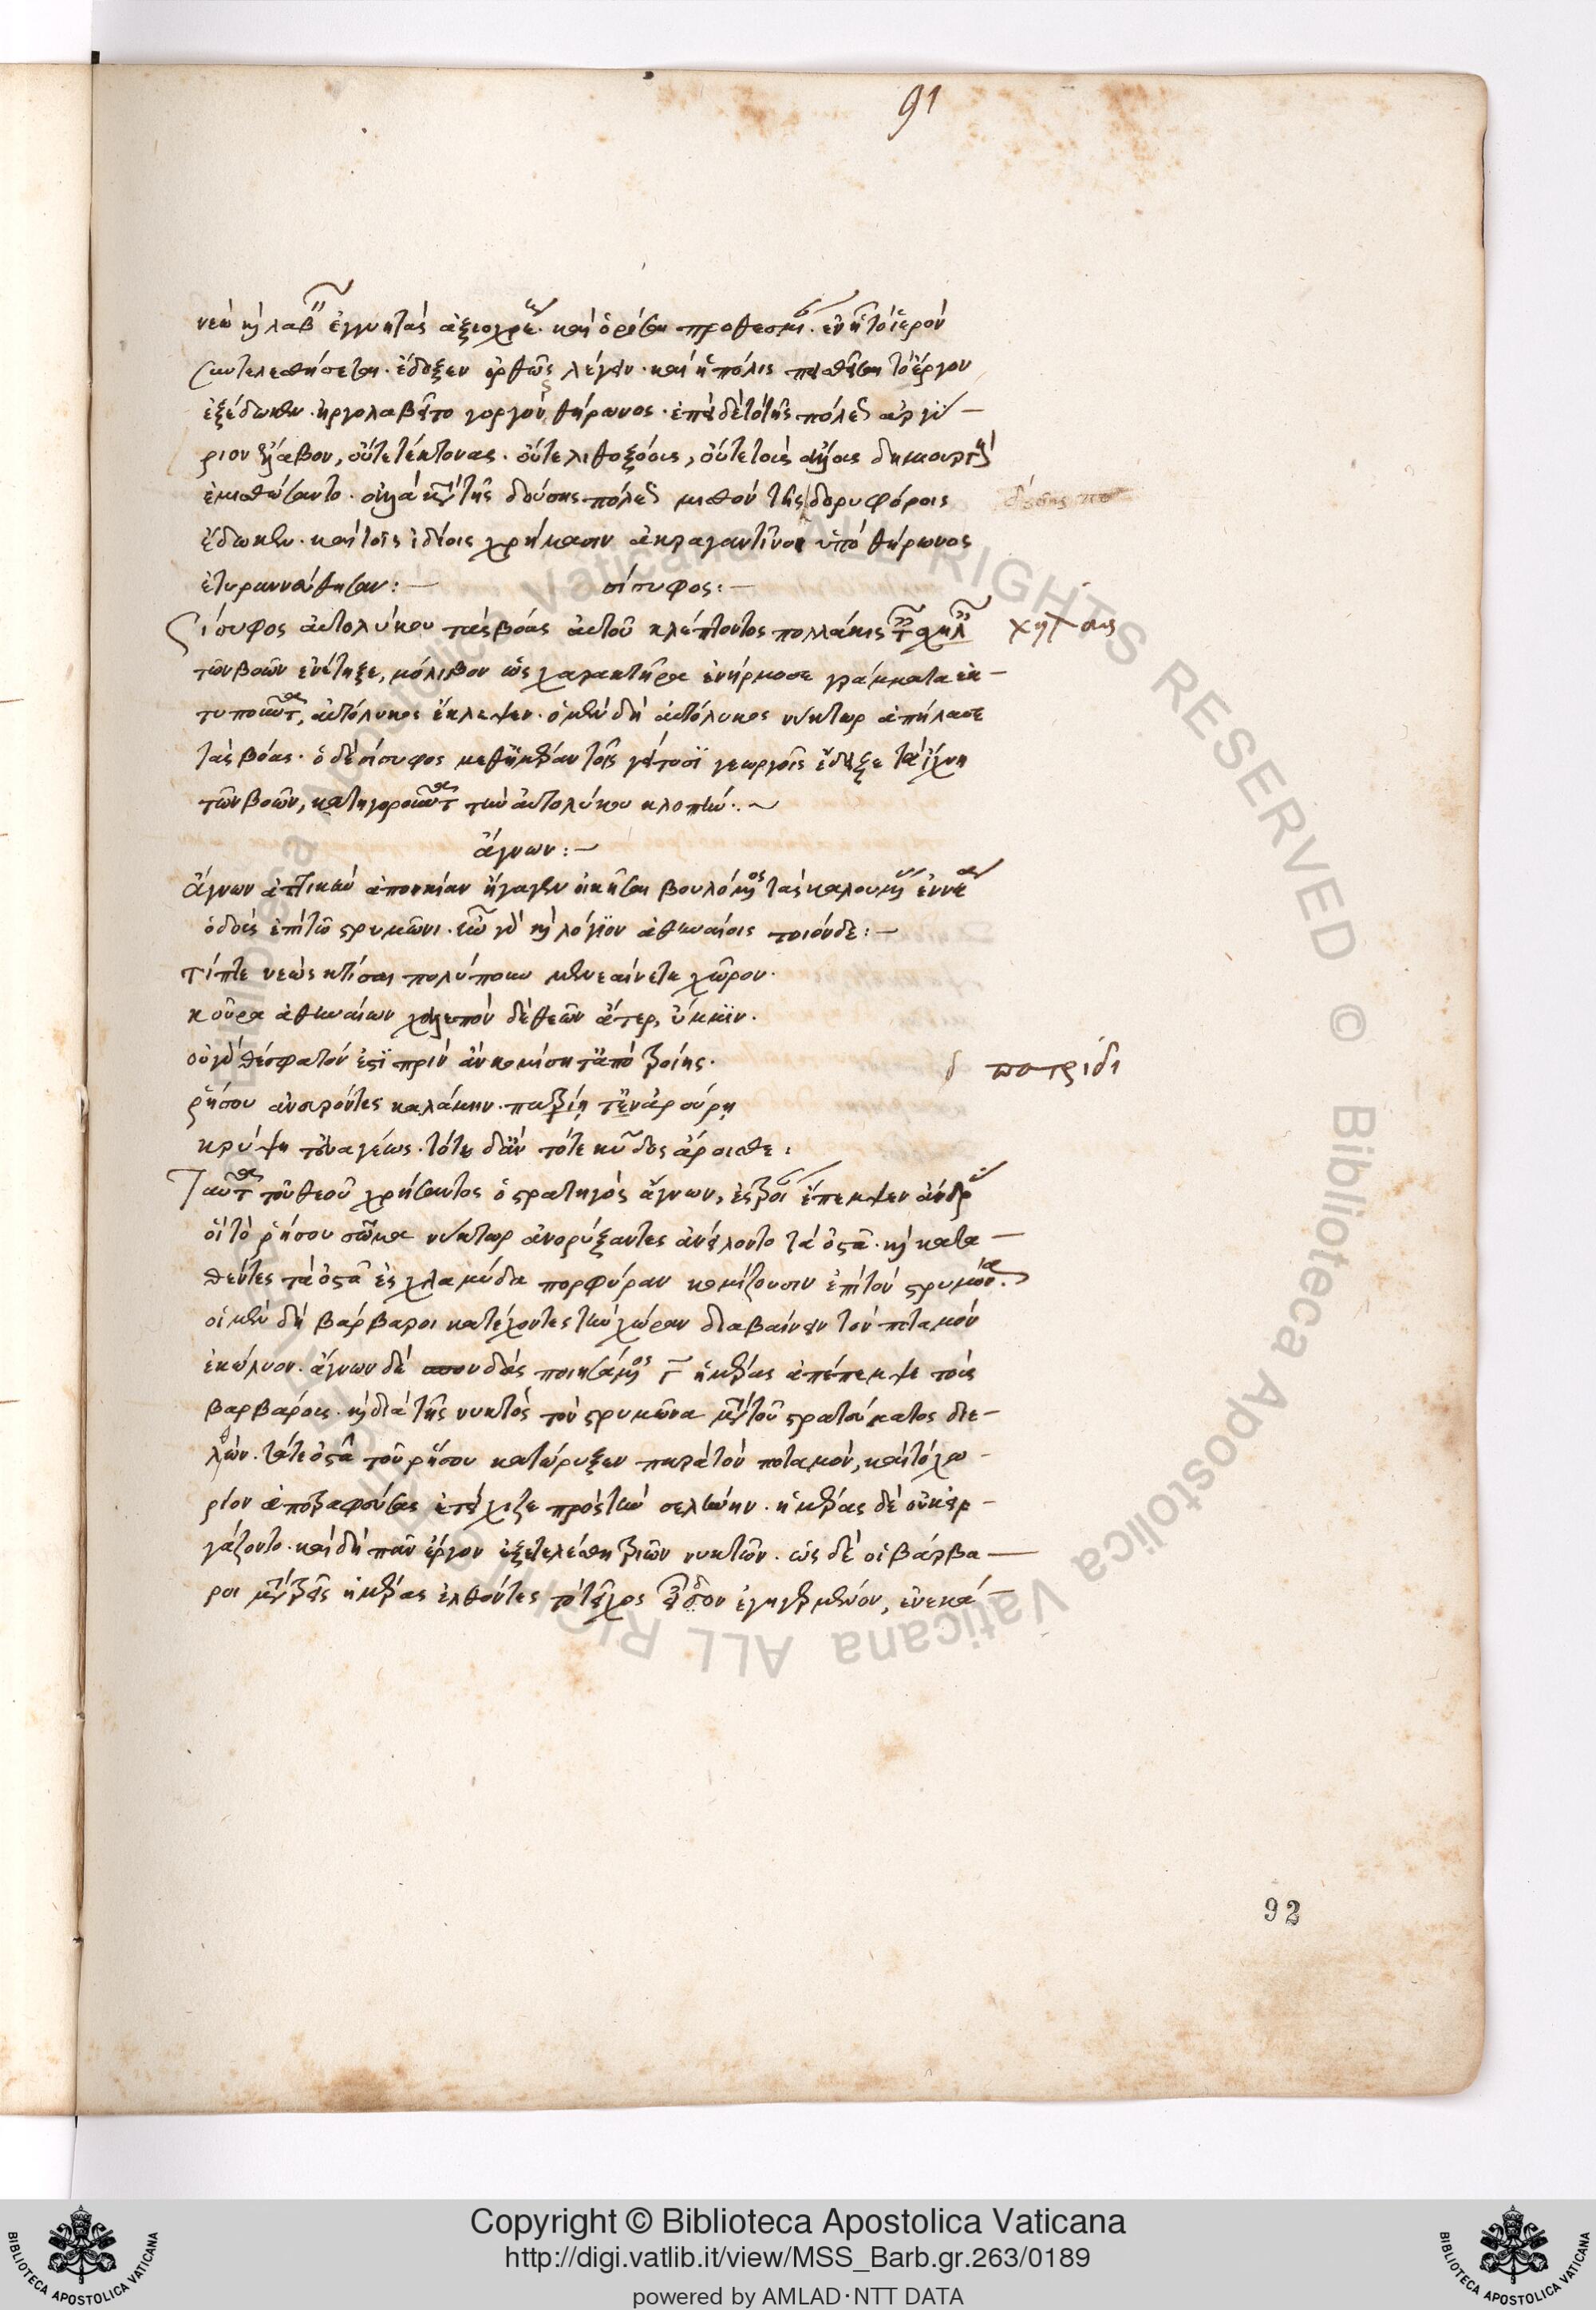 91
νεὼ καὶ λαβεῖν ἐγγυητὰς ἀξιόχρεως. καὶ ὁρίσαι προθεσμίαν. ἐν ᾗ τὸ ἱερὸν
συντελεσθήσεται. ἔδοξεν ὀρθῶς λέγειν. καὶ ἡ πόλις πεισθεῖσα τὸ ἔργον
ἐξέδωκεν. ἠργολαβεῖτο γοργοῦς θήρωνος. ἐπεὶ δὲ τὸ τῆς πόλεως ἀργύ –
ριον ἔλαβον, οὔτε τέκτονας. οὔτε λιθοξόους, οὔτε τοὺς ἄλλους δημιουργοὺς
ἐμισθώσαντο. ἀλλὰ κατὰ τῆς δούσης πόλεως μισθὸν τοῖς δορυφόροις
ἔδωκεν. καὶ τοῖς ἰδίοις χρήμασιν ἀκραγαντῖνοι ὑπὸ θήρωνος
ἐτυραννεύθησαν: – σίσυφος: –
Σίσυφος αὐτολύκου τὰς βόας αὐτοῦ κλέπτοντος πολλάκις ταῖς χηλαῖς
χηλαῖς
τῶν βοῶν ἐνέτηξε, μόλιβον ὡς χαρακτῆρα ἐνήρμοσε γράμματα ἐκ –
τυποῦντα, αὐτόλυκος ἔκλεψεν. ὁ μὲν δὴ αὐτόλυκος νύκτωρ ἀπήλασε
τὰς βόας. ὁ δὲ σίσυφος μεθ' ἡμέραν τοῖς γείτοσι γεωργοῖς ἔδειξε τὰ ἴχνη
τῶν βοῶν, κατηγοροῦντα τὴν αὐτολύκου κλοπήν. ~
ἅγνων: –
Ἅγνων ἀττικὴν ἀποικίαν ἤγαγεν οἰκῆσαι βουλόμενος τὰς καλουμένας ἐννέα
ὁδοὺς ἐπὶ τῷ στρυμῶνι. ἦν γὰρ καὶ λόγιον ἀθηναίοις τοιόνδε: –
τίπτε νεῶς κτίσαι πολύπουν μενεαίνετε χῶρον.
κοῦροι ἀθηναίων χαλεπὸν δὲ θεῶν ἄτερ, ὔμμιν.
οὐ γὰρ θέσφατόν ἐστι πρὶν ἂν κομίσητ' ἀπὸ τροίης.
ῥήσου ἀνευρόντες καλάμην. πατρίῃ τ' ἐν ἀρούρῃ
δ πατρίδι
κρύψητ' εὐαγέως. τότε δ' ἂν τότε κῦδος ἄροισθε:
Ταῦτα τοῦ θεοῦ χρήσαντος ὁ στρατηγὸς ἅγνων, ἐς τροίαν ἔπεμψεν ἄνδρας
οἳ τὸ ῥήσου σῶμα νύκτωρ ἀνορύξαντες ἀνείλοντο τὰ ὀστᾶ. καὶ κατα –
θέντες τὰ ὀστᾶ ἐς χλαμύδα πορφύραν κομίζουσιν ἐπὶ τὸν στρυμόνα.
οἱ μὲν δὴ βάρβαροι κατέχοντες τὴν χώραν διαβαίνειν τὸν ποταμὸν
ἐκώλυον. ἅγνων δὲ σπονδὰς ποιησάμενος γ ἡμέρας ἀπέπεμψε τοὺς
βαρβάρους. καὶ διὰ τῆς νυκτὸς τὸν στρυμῶνα μετὰ τοῦ στρατεύματος διε –
λθών. τά τε ὀστᾶ τοῦ ῥήσου κατώρυξεν παρὰ τὸν ποταμὸν, καὶ τὸ χω –
ρίον ἀποταφρεύσας ἐτείχιζε πρὸς τὴν σελήνην. ἡμέρας δὲ οὐκ εἰρ –
γάζοντο. καὶ δὴ πᾶν ἔργον ἐξετελέσθη τριῶν νυκτῶν. ὡς δὲ οἱ βάρβα –
ροι μετὰ τρεῖς ἡμέρας ἐλθόντες τὸ τεῖχος εἶδον ἐγηγερμένον, ἐνεκά –
92
Copyright © Biblioteca Apostolica Vaticana
http://digi.vatlib.it/view/MSS_Barb.gr.263/0189
powered by AMLAD·NTT DATA